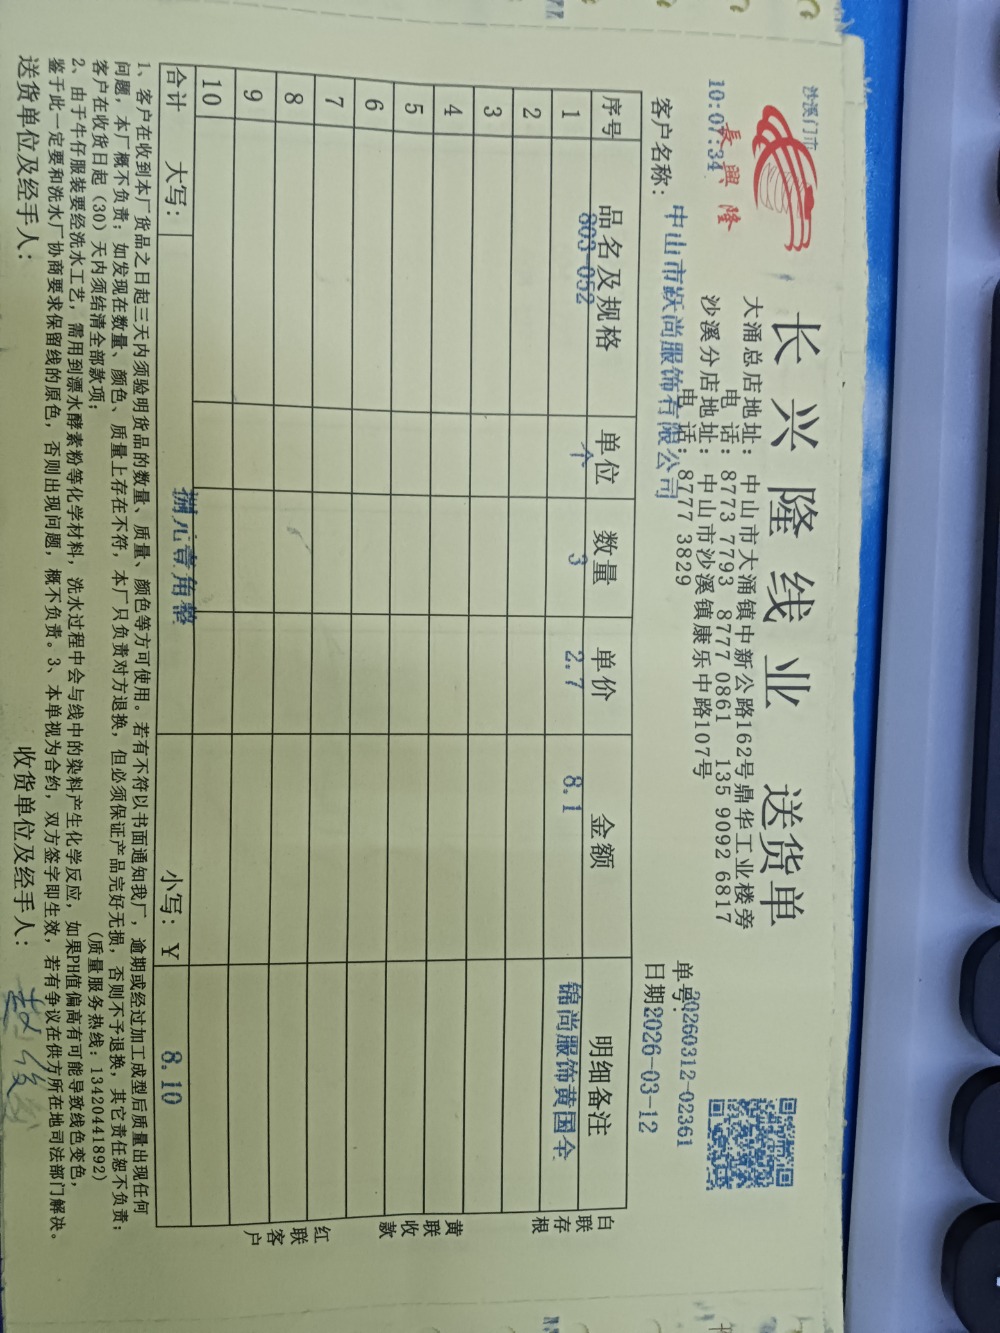 沙溪门市
10:07:34
長興隆
长兴隆线业 送货单
大涌总店地址：中山市大涌镇中新公路162号鼎华工业楼旁
电 话：8773 7793 8777 0861 135 9092 6817
沙溪分店地址：中山市沙溪镇康乐中路107号
电 话：8777 3829
单号：20260312-02361
客户名称：中山市跃尚服饰有限公司
日期2026-03-12
序号 品名及规格 单位 数量 单价 金额 明细备注
1 803-052 个 3 2.7 8.1 锦尚服饰黄国伞
2
3
4
5
6
7
8
9
10
合计 大写：捌元壹角整 小写：¥ 8.10
白联存根
黄联收款
红联客户
1、客户在收到本厂货品之日起三天内须验明货品的数量、质量、颜色等方可使用。若有不符以书面通知我厂，逾期或经过加工成型后质量出现任何
问题，本厂概不负责；如发现在数量、颜色、质量上存在不符，本厂只负责对方退换，但必须保证产品完好无损，否则不予退换，其它责任恕不负责；
客户在收货日起（30）天内须结清全部款项；（质量服务热线：13420441892）
2、由于牛仔服装要经洗水工艺，需用到漂水酵素粉等化学材料，洗水过程中会与线中的染料产生化学反应，如果PH值偏高有可能导致线色变色，
鉴于此一定要和洗水厂协商要求保留线的原色，否则出现问题，概不负责。3、本单视为合约，双方签字即生效，若有争议在供方所在地司法部门解决。
送货单位及经手人： 收货单位及经手人：